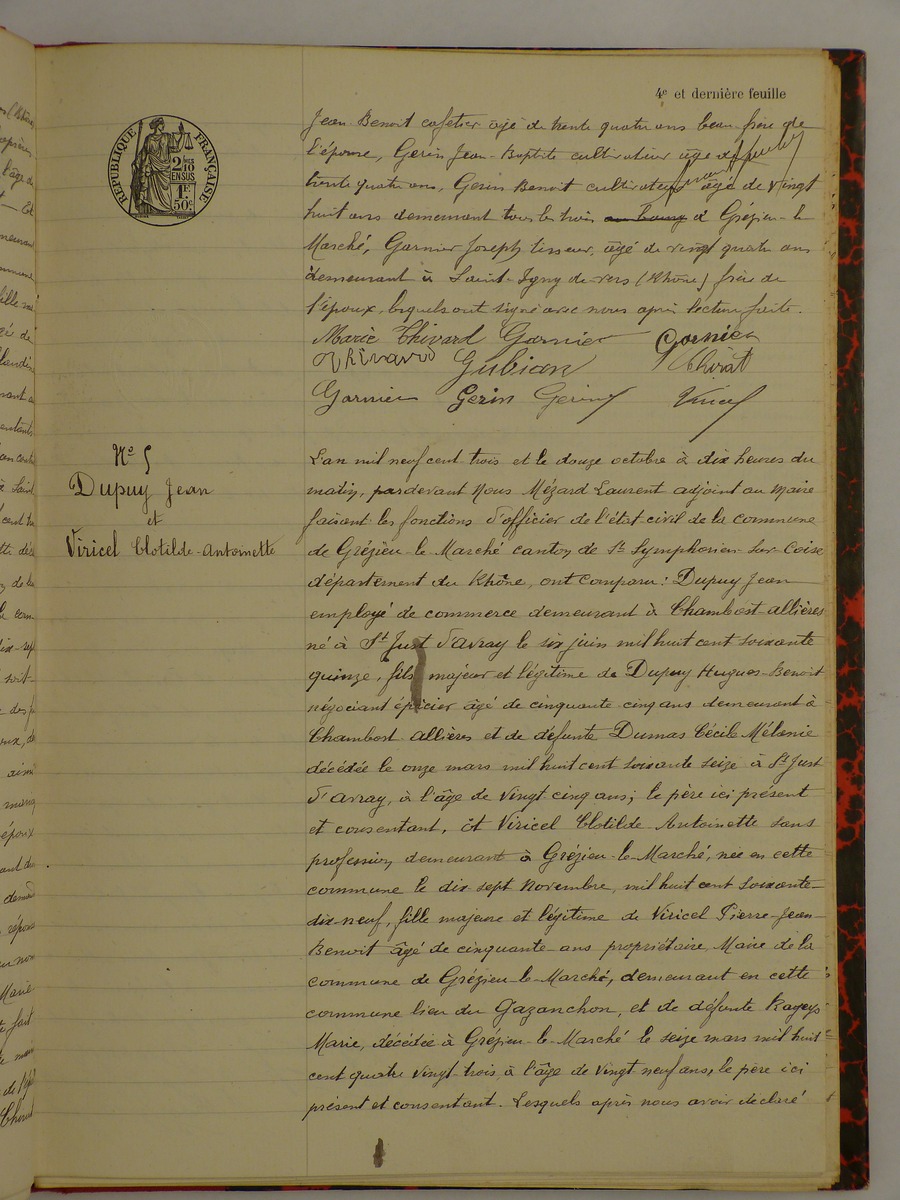 4e et dernière feuille
RÉPUBLIQUE FRANÇAISE
2/10mes
EN SUS
1F.
50c
Jean Benoit cafetier âgé de trente quatre ans beau-frère de
l'épouse, Gerin Jean-Baptiste cultivateur âgé de
trente quatre ans, Gerin Benoit cultivateur âgé de vingt
huit ans demeurant tous les trois au bourg à Grézieu-le-
Marché, Garnier Joseph tisseur, âgé de vingt quatre ans
demeurant à Saint-Igny-de-vers (Rhône) frère de
l'époux, lesquels ont signé avec nous après lecture faite.
Marie Thivard Garnier Garnier
Thivard Gubian Chirat
Garnier Gerin Gerin Viricel
No 5
Dupuy Jean
et
Viricel Clotilde-Antoinette
L'an mil neuf cent trois et le douze octobre à dix heures du
matin, pardevant Nous Mézard Laurent adjoint au Maire
faisant les fonctions d'officier de l'état civil de la commune
de Grézieu-le-Marché canton de St Symphorien-sur-Coise
département du Rhône, ont comparu: Dupuy Jean
employé de commerce demeurant à Chambost-allières
né à St Just d'avray le six juin mil huit cent soixante
quinze, fils majeur et légitime de Dupuy Hugues-Benoit
négociant épicier âgé de cinquante cinq ans demeurant à
Chambost-allières et de défunte Dumas Cécile Mélanie
décédée le onze mars mil huit cent soixante seize à St Just
d'avray, à l'âge de vingt cinq ans; le père ici présent
et consentant, Et Viricel Clotilde-Antoinette sans
profession, demeurant à Grézieu-le-Marché, née en cette
commune le dix-sept Novembre, mil huit cent soixante-
dix-neuf, fille majeure et légitime de Viricel Pierre-Jean-
Benoit âgé de cinquante ans propriétaire, Maire de la
commune de Grézieu-le-Marché, demeurant en cette
commune lieu du Gazanchon, et de défunte Rageys
Marie, décédée à Grézieu-le-Marché le seize mars mil huit
cent quatre vingt trois, à l'âge de vingt neuf ans, le père ici
présent et consentant. Lesquels après nous avoir declaré